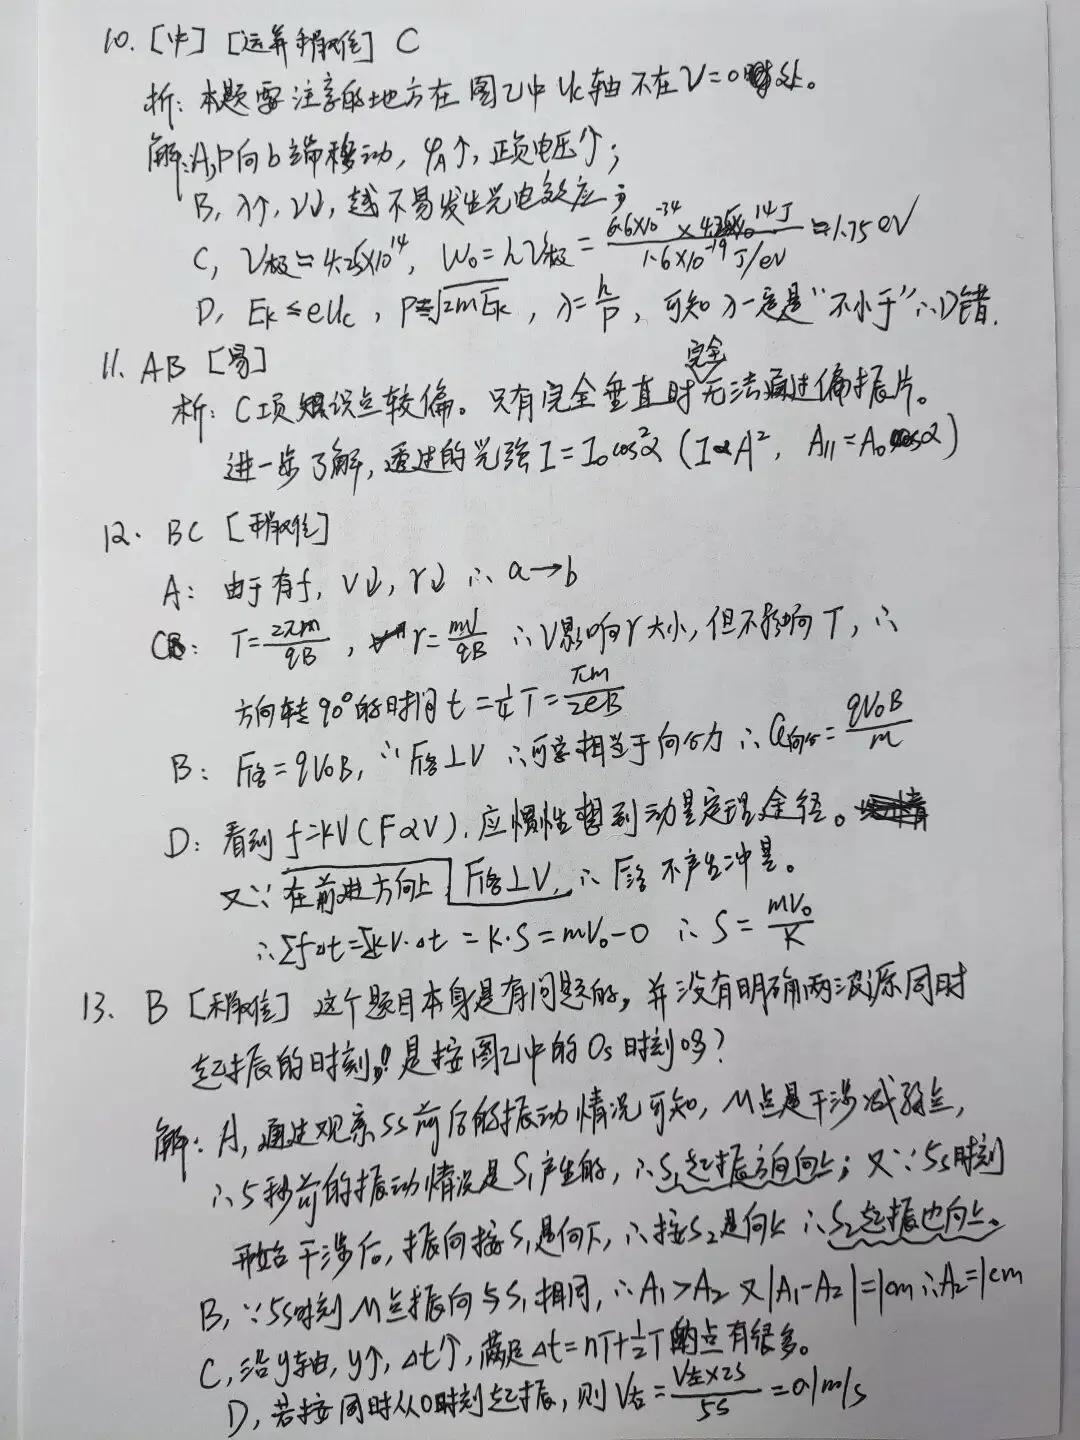 10. [中] [运算稍难] C
析: 本题要注意的地方在图乙中 Uc轴 不在 ν=0 处。
解: A, P向b端移动, φA↑, 正负电压↑;
B, λ↑, ν↓, 越不易发生光电效应;
C, ν极≈4.25×10¹⁴, W₀=hν极= 6.6×10⁻³⁴×4.25×10¹⁴J / 1.6×10⁻¹⁹J/eV ≈1.75eV
D, Ek≤eUc, P=√2mEk, λ=h/P, 可知λ一定是“不小于” ∴D错.
11. AB [易]
析: C项知识点较偏。只有完全垂直时完全无法通过偏振片。
进一步了解, 透过的光强 I=I₀cos²α (I∝A², A∥=A₀cosα)
12. BC [稍难]
A: 由于有f, V↓, r↓ ∴ a→b
C: T=2πm/qB, r=mV/qB ∴V影响r大小, 但不影响T, ∴
方向转90°的时间 t=¼T=πm/2eB
B: F洛=qV₀B, ∵F洛⊥V ∴可 相当于向心力 ∴a向心=qV₀B/m
D: 看到 f=kV (F∝V), 应惯性想到动量定理途径。
又∵在前进方向上 F洛⊥V, ∴F洛不产生冲量。
∴Σf·Δt=ΣkV·Δt=K·S=mV₀-0 ∴S=mV₀/K
13. B [稍难] 这个题目本身是有问题的, 并没有明确两波源同时
起振的时刻, 是按图乙中的0s时刻吗?
解: A, 通过观察5s前后的振动情况可知, M点是干涉减弱点,
∴5秒前的振动情况是S₁产生的, ∴S₁起振方向向上; 又∵5s时刻
开始干涉后, 振向按S₁是向下, ∴按S₂是向上 ∴S₂起振也向上。
B, ∵5s时刻M点振向与S₁相同, ∴A₁>A₂ 又|A₁-A₂|=1cm ∴A₂=1cm
C, 沿y轴, y↑, Δt↑, 满足Δt=nT+½T的点有很多。
D, 若按同时从0时刻起振, 则V右=V左×2s/5s=0.1m/s